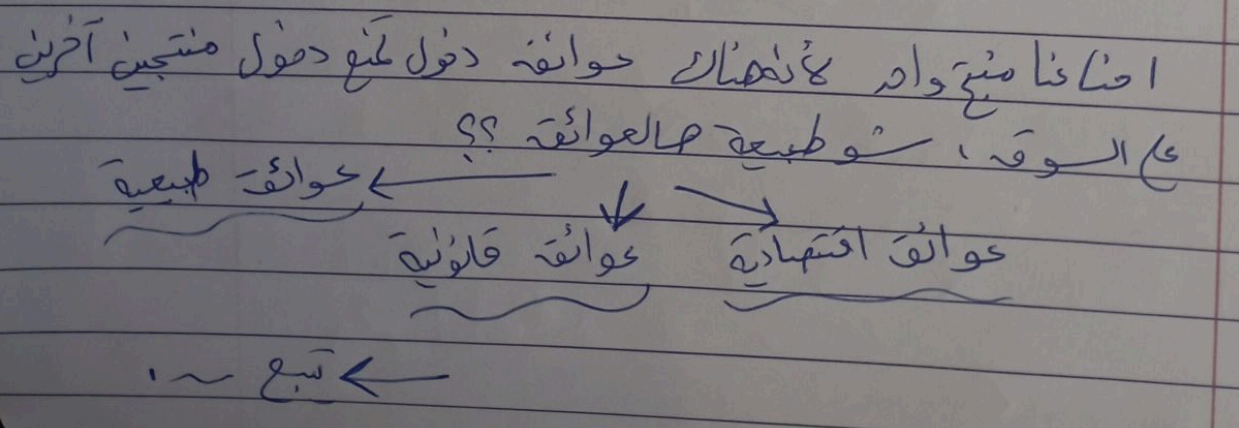 احنا عنا منتج واحد لأنه هناك عوائق دخول تمنع دخول منتجين آخرين
ع السوق، شو طبيعة هالعوائق ؟؟
عوائق طبيعية
عوائق اقتصادية عوائق قانونية
تبع